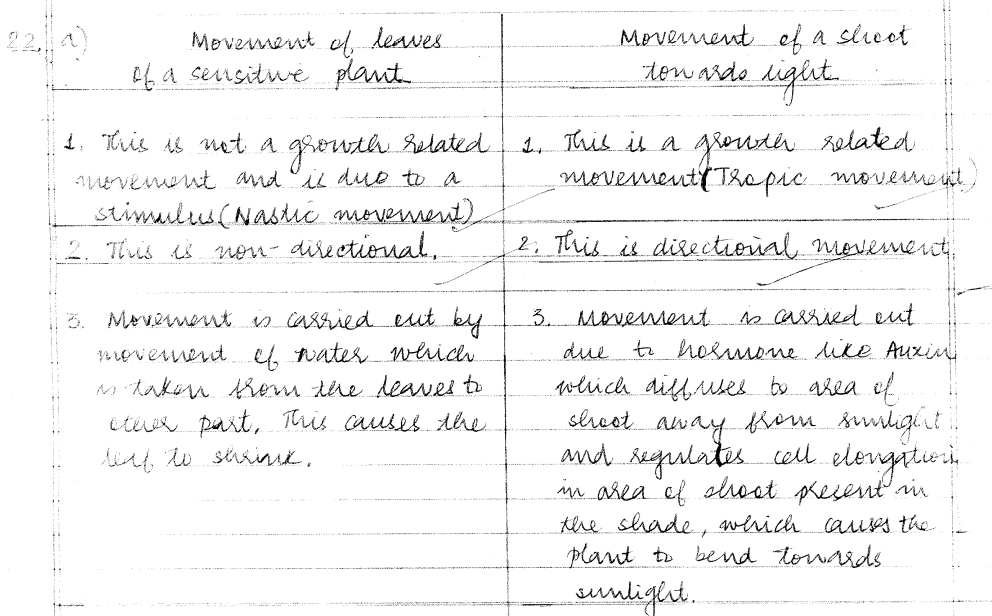 22. a) Movement of leaves
of a sensitive plant
1. This is not a growth related
movement and is due to a
stimulus (Nastic movement)
2. This is non-directional.
3. Movement is carried out by
movement of water which
is taken from the leaves to
other part. This causes the
leaf to shrink.
Movement of a shoot
towards light
1. This is a growth related
movement (Tropic movement)
2. This is directional movement.
3. Movement is carried out
due to hormone like Auxin
which diffuses to area of
shoot away from sunlight
and regulates cell elongation
in area of shoot present in
the shade, which causes the
plant to bend towards
sunlight.